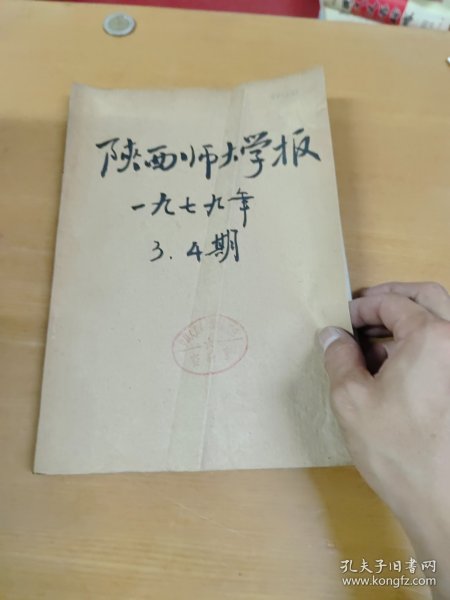 陕西师大学报
一九七九年
3.4期
孔夫子旧书网
www.kongfz.com